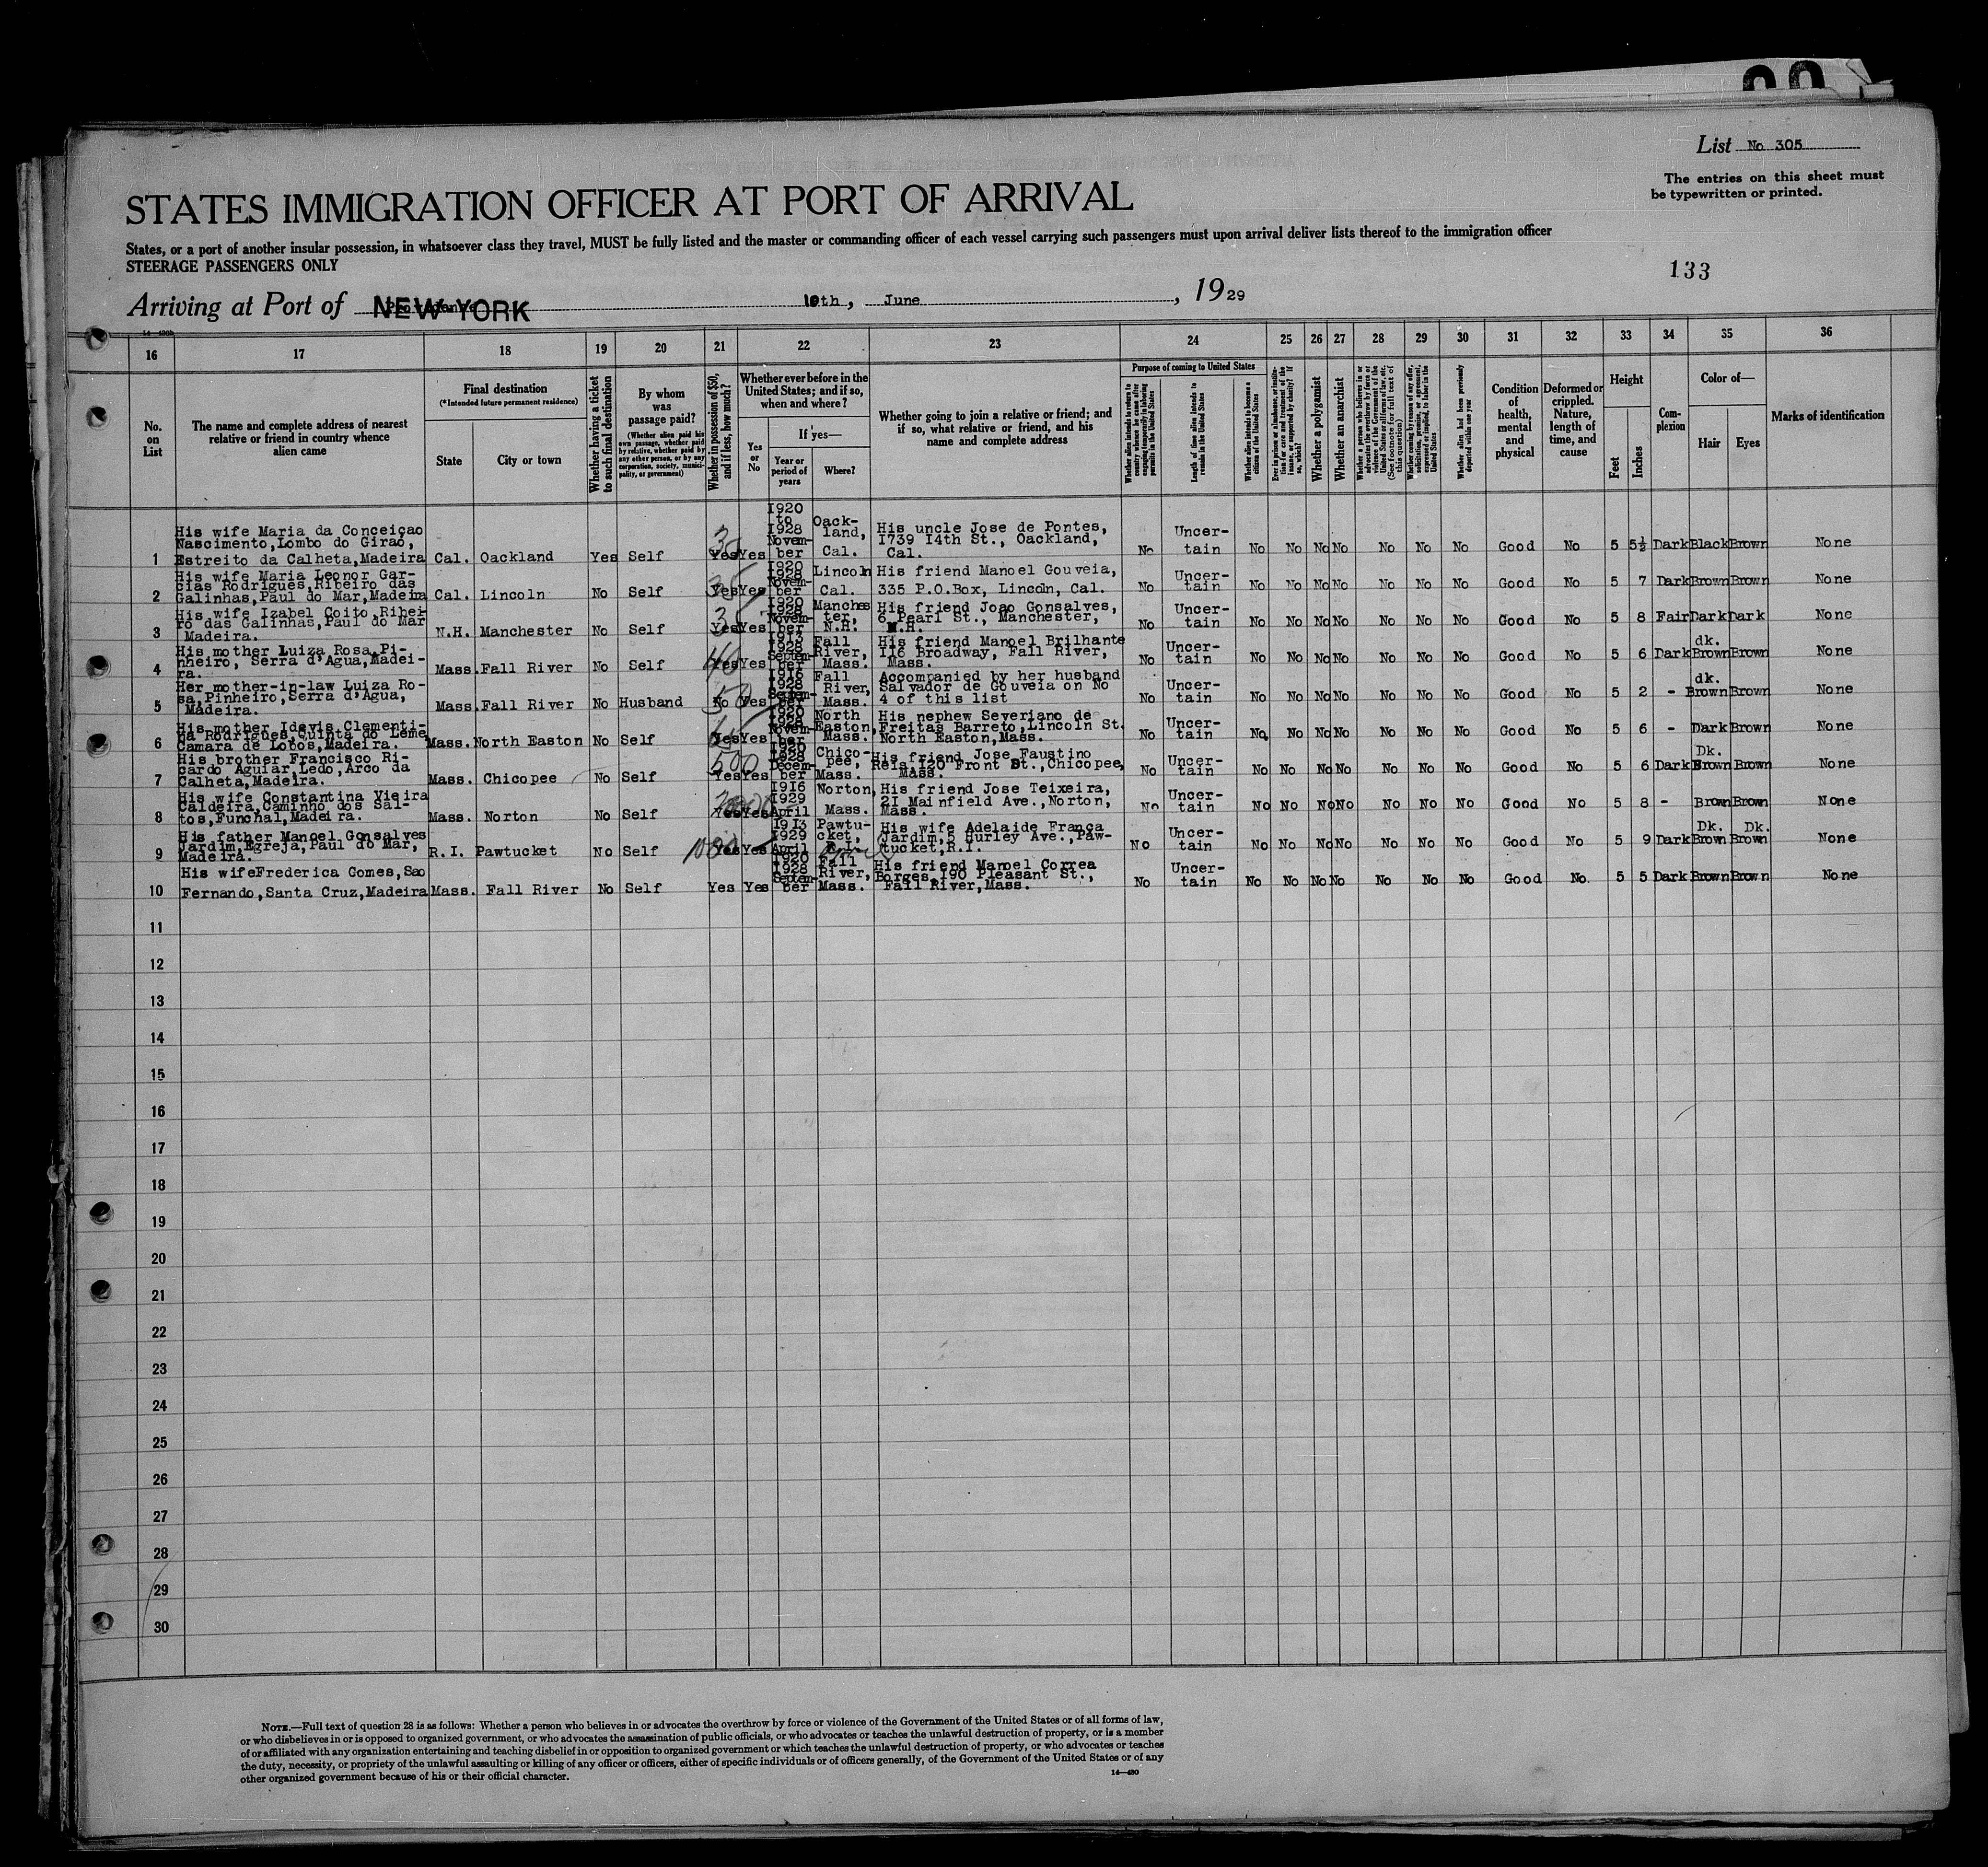 List No 305
The entries on this sheet must
be typewritten or printed.
STATES IMMIGRATION OFFICER AT PORT OF ARRIVAL
States, or a port of another insular possession, in whatsoever class they travel, MUST be fully listed and the master or commanding officer of each vessel carrying such passengers must upon arrival deliver lists thereof to the immigration officer
STEERAGE PASSENGERS ONLY
133
Arriving at Port of NEW YORK June, 1929
16 17 18 19 20 21 22 23 24 25 26 27 28 29 30 31 32 33 34 35 36
No. on List
The name and complete address of nearest relative or friend in country whence alien came
Final destination
(*Intended future permanent residence)
State
City or town
Whether having a ticket to such final destination
By whom was passage paid?
(Whether alien paid his own passage, whether paid by relative, whether paid by any other person, or by any corporation, society, municipality, or government)
Whether in possession of $50, and if less, how much?
Whether ever before in the United States; and if so, when and where?
Yes or No
If yes—
Year or period of years
Where?
Whether going to join a relative or friend; and if so, what relative or friend, and his name and complete address
Purpose of coming to United States
Length of time alien intends to remain in the United States
Whether alien intends to become a citizen of the United States
Whether a polygamist
Whether an anarchist
Condition of health, mental and physical
Deformed or crippled. Nature, length of time, and cause
Height
Feet
Inches
Complexion
Color of—
Hair
Eyes
Marks of identification
1 His wife Maria da Conceiçao Nascimento, Lombo do Girao, Estreito da Calheta, Madeira Cal. Oackland Yes Self Yes Yes 1920 to 1928 November Oackland, Cal. His uncle Jose de Pontes, 1739 14th St., Oackland, Cal. No Uncertain No No No No No No No Good No 5 5½ Dark Black Brown None
2 His wife Maria Leonor Garcias Rodrigues, Ribeiro das Galinhas, Paul do Mar, Madeira Cal. Lincoln No Self Yes Yes 1920 1928 November Lincoln Cal. His friend Manoel Gouveia, 335 P.O.Box, Lincoln, Cal. No Uncertain No No No No No No No Good No 5 7 Dark Brown Brown None
3 His wife Izabel Coito, Ribeiro das Galinhas, Paul do Mar Madeira. N.H. Manchester No Self 35 Yes Yes 1920 1928 November Manchester, N.H. His friend Joao Gonsalves, 6 Pearl St., Manchester, N.H. No Uncertain No No No No No No No Good No 5 8 Fair Dark Dark None
4 His mother Luiza Rosa, Pinheiro, Serra d'Agua, Madeira. Mass. Fall River No Self Yes Yes 1913 1928 September Fall River, Mass. His friend Manoel Brilhante 116 Broadway, Fall River, Mass. No Uncertain No No No No No No No Good No 5 6 Dark dk. Brown Brown None
5 Her mother-in-law Luiza Rosa, Pinheiro, Serra d'Agua, Madeira. Mass. Fall River No Husband 50 No Yes 1916 1928 September Fall River, Mass. Accompanied by her husband Salvador de Gouveia on No 4 of this list No Uncertain No No No No No No No Good No 5 2 - dk. Brown Brown None
6 His mother Idevis Clementina Rodrigues, Quinta do Leme Camara de Lobos, Madeira. Mass. North Easton No Self Yes Yes 1920 1928 November North Easton, Mass. His nephew Severiano de Freitas Barreto, Lincoln St. North Easton, Mass. No Uncertain No No No No No No No Good No 5 6 - Dark Brown None
7 His brother Francisco Ricardo Aguiar, Ledo, Arco da Calheta, Madeira. Mass. Chicopee No Self 500 Yes Yes 1920 1928 December Chicopee, Mass. His friend Jose Faustino Reis, 120 Front St., Chicopee, Mass. No Uncertain No No No No No No No Good No 5 6 Dark Dk. Brown Brown None
8 His wife Constantina Vieira Caldeira, Caminho dos Saltos, Funchal, Madeira. Mass. Norton No Self Yes Yes 1916 1929 April Norton, Mass. His friend Jose Teixeira, 21 Mainfield Ave., Norton, Mass. No Uncertain No No No No No No No Good No 5 8 - Brown Brown None
9 His father Manoel Gonsalves Jardim, Egreja, Paul do Mar, Madeira. R.I. Pawtucket No Self Yes Yes 1913 1929 April Pawtucket, R.I. His wife Adelaide França Jardim, 5 Hurley Ave., Pawtucket, R.I. No Uncertain No No No No No No No Good No 5 9 Dark Dk. Brown Dk. Brown None
10 His wife Frederica Gomes, Sao Fernando, Santa Cruz, Madeira Mass. Fall River No Self Yes Yes 1920 1928 September Fall River, Mass. His friend Manoel Correa Borges, 190 Pleasant St., Fall River, Mass. No Uncertain No No No No No No No Good No. 5 5 Dark Brown Brown None
11
12
13
14
15
16
17
18
19
20
21
22
23
24
25
26
27
28
29
30
NOTE.—Full text of question 28 is as follows: Whether a person who believes in or advocates the overthrow by force or violence of the Government of the United States or of all forms of law,
or who disbelieves in or is opposed to organized government, or who advocates the assassination of public officials, or who advocates or teaches the unlawful destruction of property, or is a member
of or affiliated with any organization entertaining and teaching disbelief in or opposition to organized government or which teaches the unlawful destruction of property, or who advocates or teaches
the duty, necessity, or propriety of the unlawful assaulting or killing of any officer or officers, either of specific individuals or of officers generally, of the Government of the United States or of any
other organized government because of his or their official character.
14—430